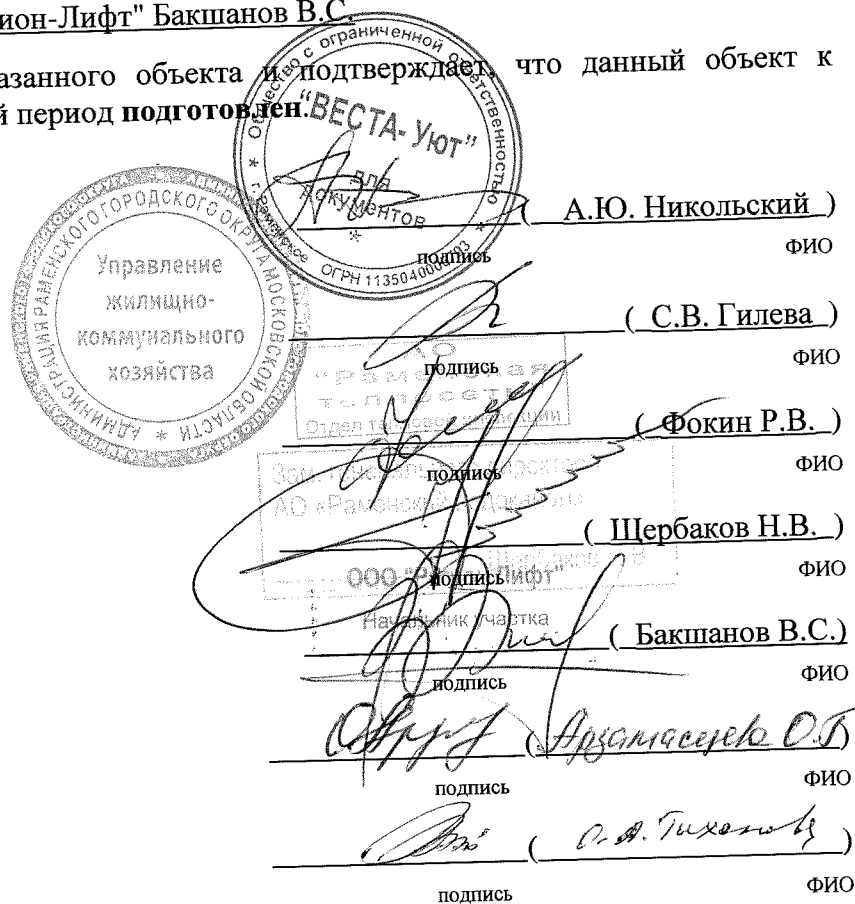 ион-Лифт" Бакшанов В.С.
азанного объекта и подтверждает, что данный объект к
й период подготовлен.
Общество с ограниченной ответственностью
"ВЕСТА-Уют"
для
документов
г. Раменское ОГРН
( А.Ю. Никольский )
подпись ФИО
АДМИНИСТРАЦИЯ РАМЕНСКОГО ГОРОДСКОГО ОКРУГА МОСКОВСКОЙ ОБЛАСТИ
Управление
жилищно-
коммунального
хозяйства
( С.В. Гилева )
подпись ФИО
АО
"Раменская
теплосеть"
Отдел тепловой инспекции
( Фокин Р.В. )
подпись ФИО
Зам. генерального директора
АО «Раменский водоканал»
Щербаков Н.В.
( Щербаков Н.В. )
подпись ФИО
ООО "Регион-Лифт"
Начальник участка
( Бакшанов В.С.)
подпись ФИО
(Арзамасцева О.В)
подпись ФИО
( О.А. Тихонова )
подпись ФИО